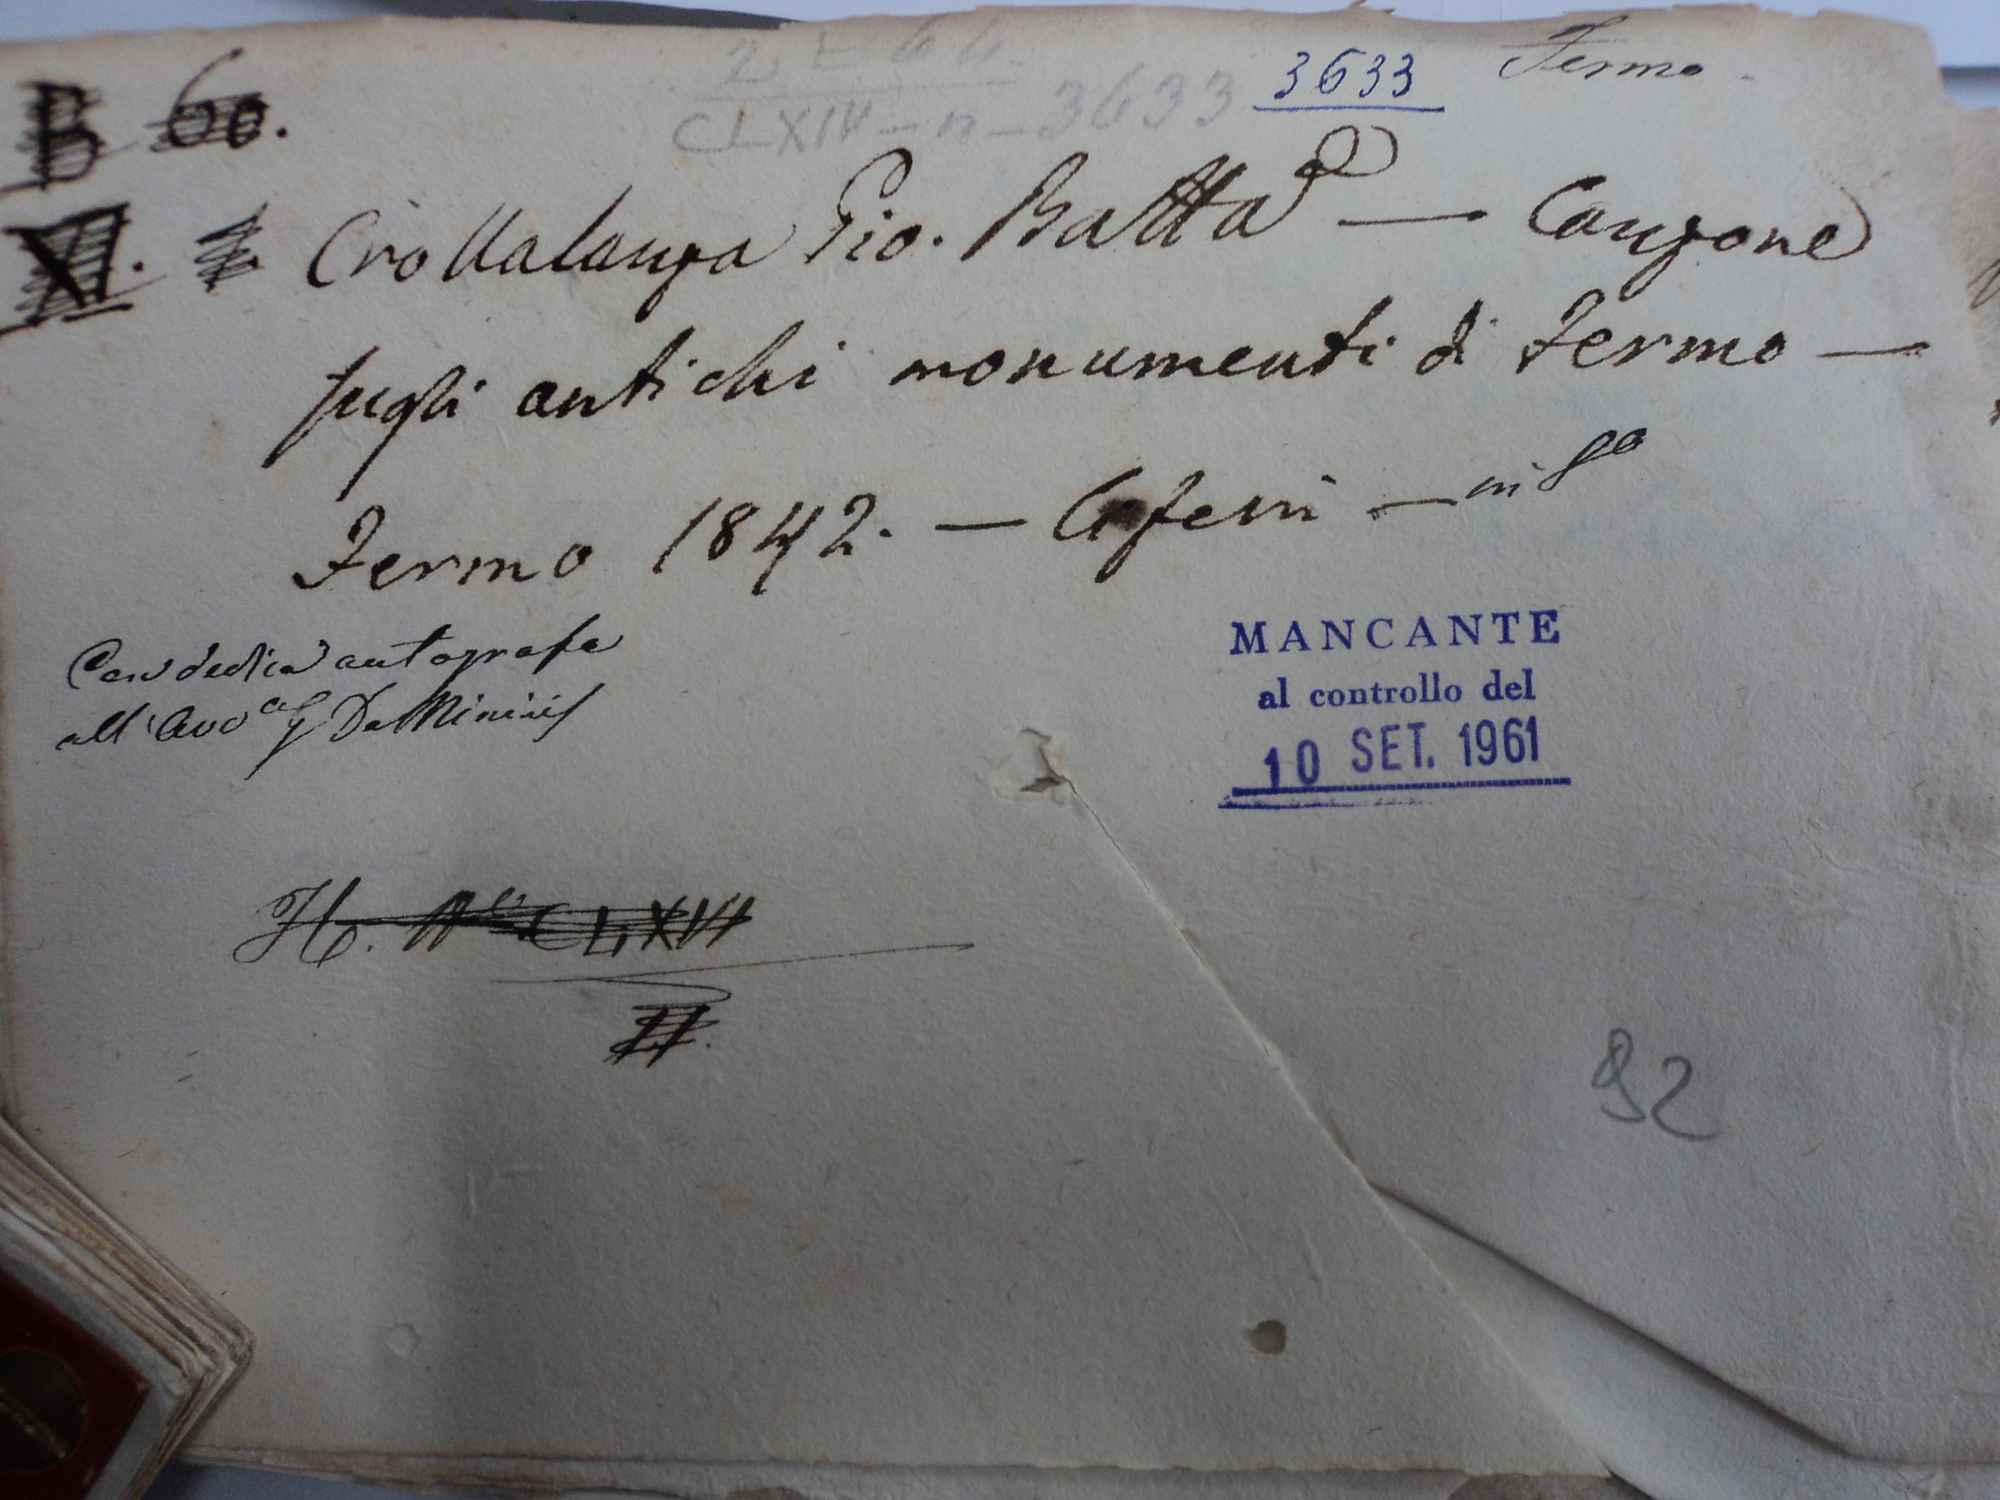 B 60.
CLXIV - n - 3633
3633
Fermo
XI.
Crollalanza Gio. Batta — Canzone
sugli antichi monumenti di Fermo —
Fermo 1842. —
Con dedica autografa
all'Avv De Minicis
MANCANTE
al controllo del
10 SET. 1961
CLXIV
92